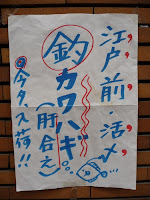 江戸前・活〆
釣カワハギ。
(肝合え)
◎今夕入荷!!